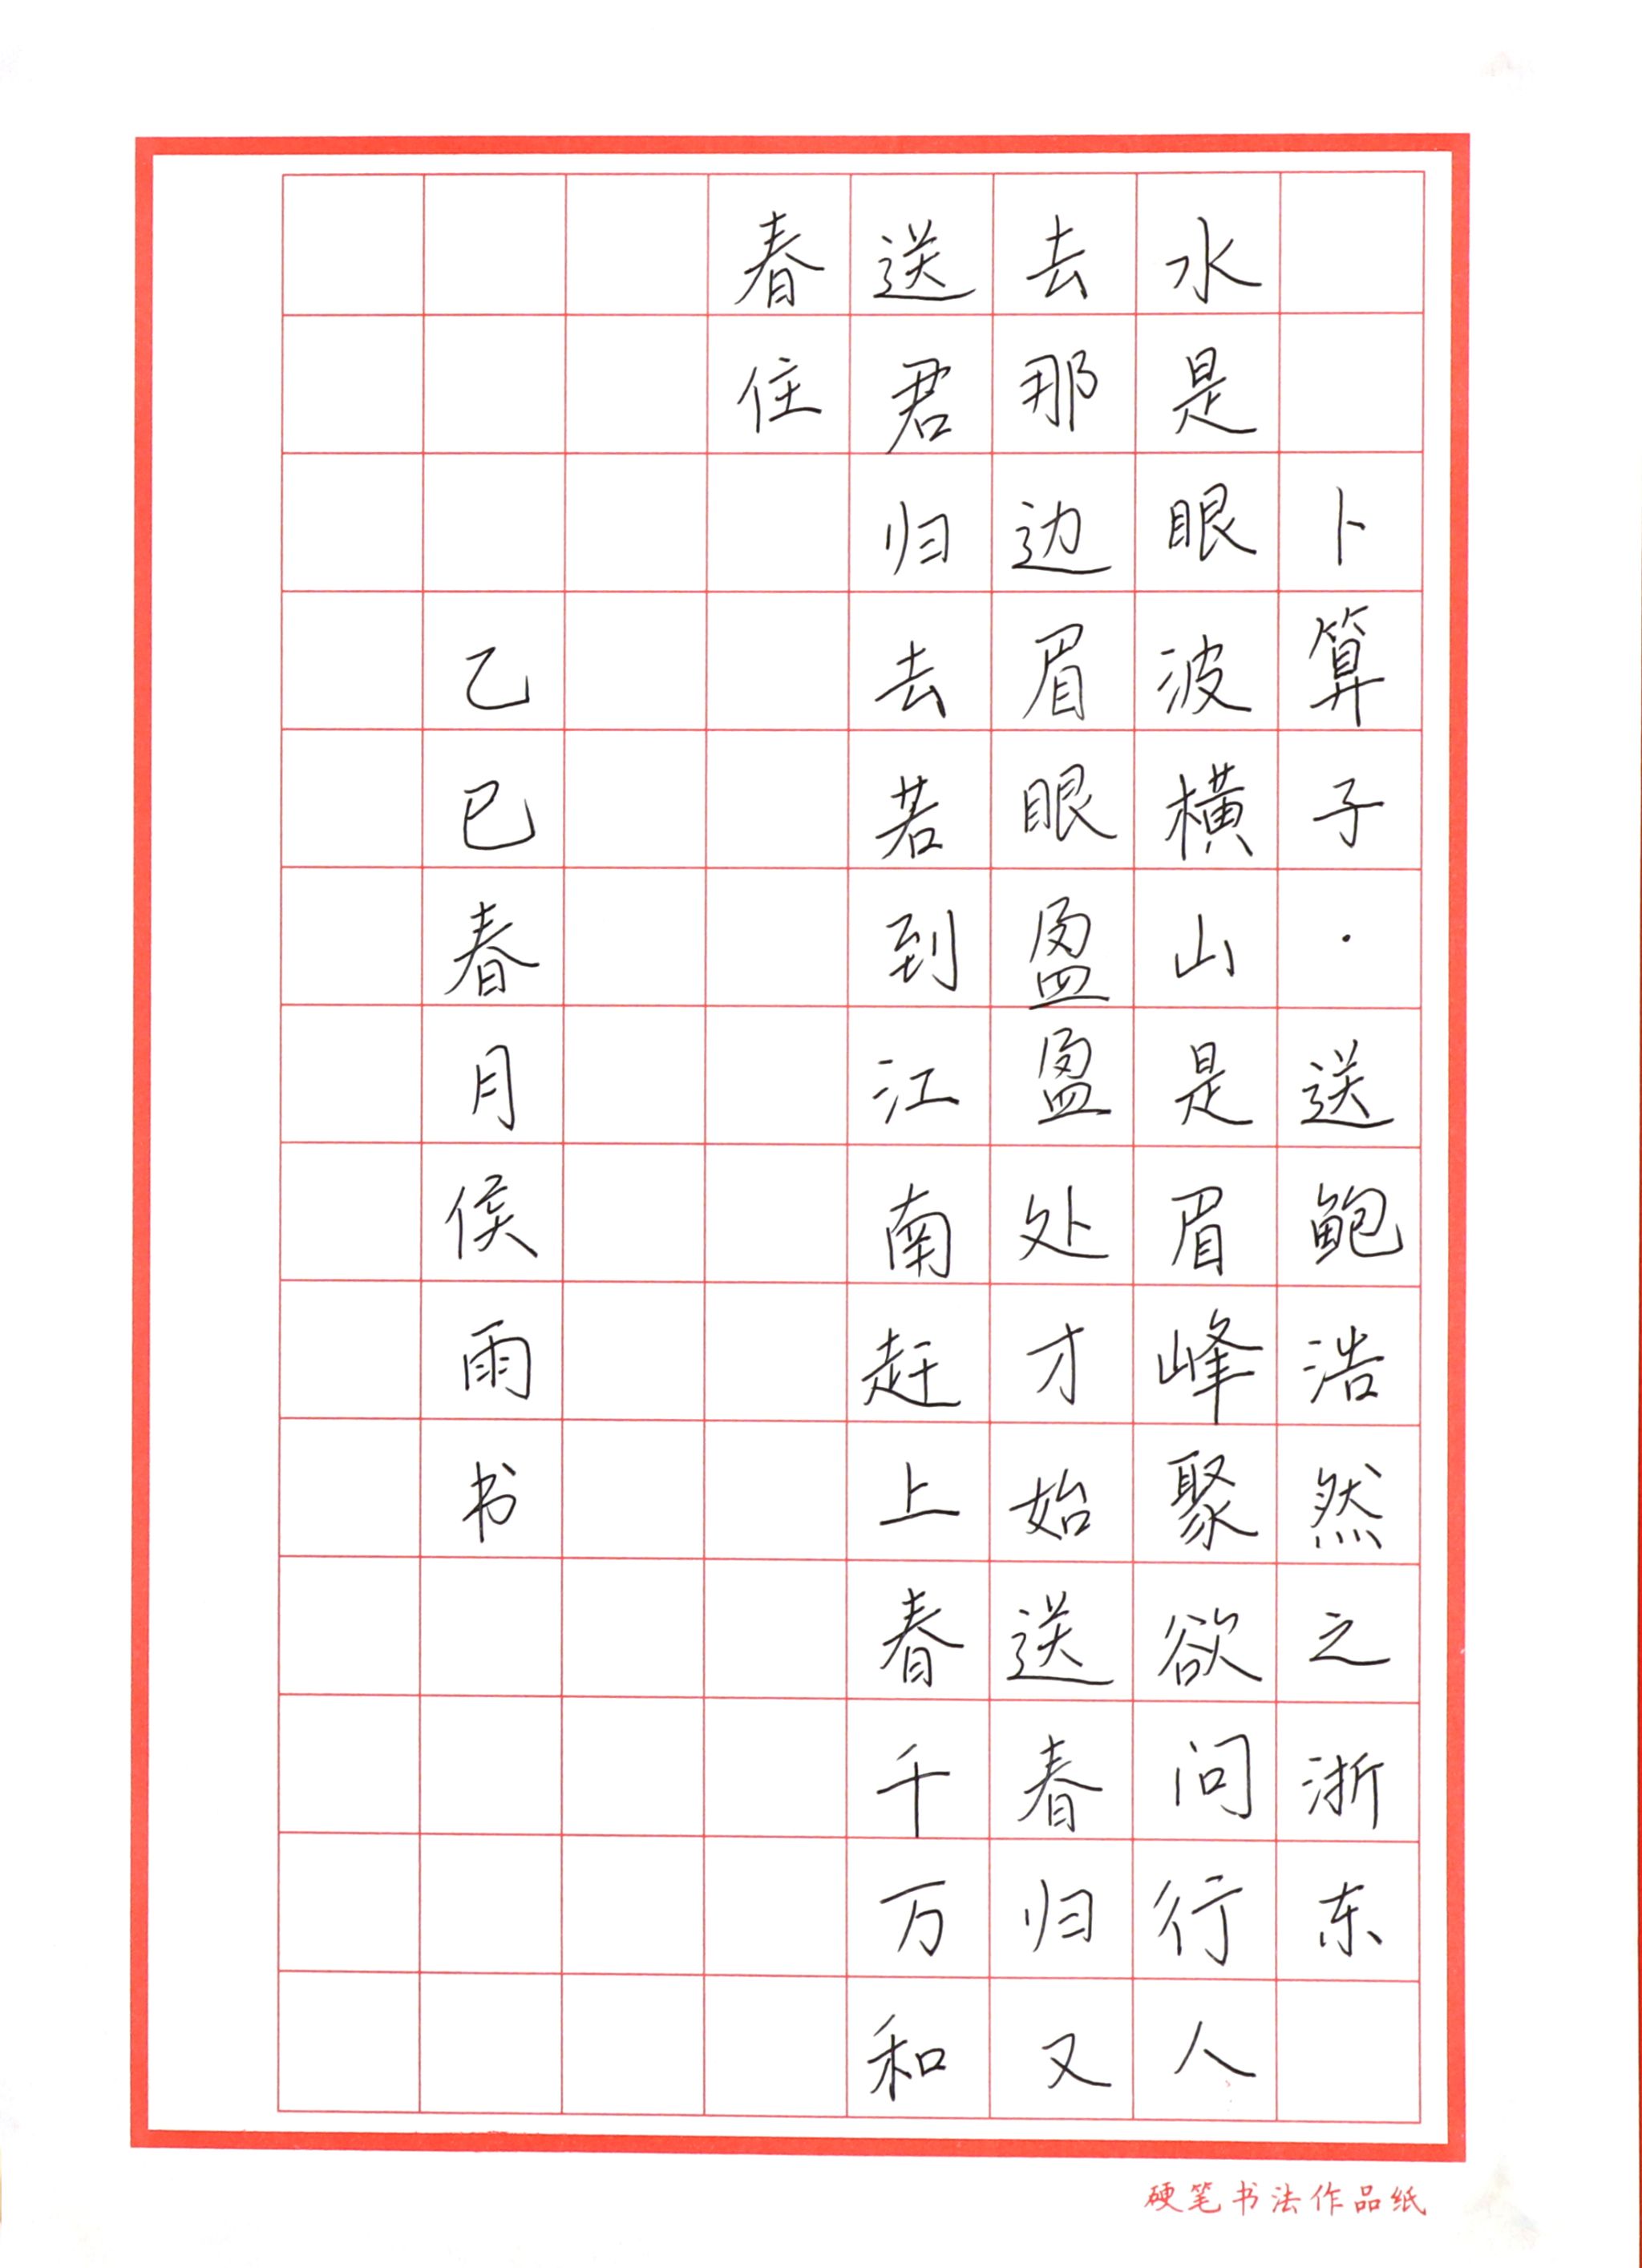 卜算子·送鲍浩然之浙东
水是眼波横山是眉峰聚欲问行人
去那边眉眼盈盈处才始送春归又
送君归去若到江南赶上春千万和
春住
乙巳春月侯雨书
硬笔书法作品纸